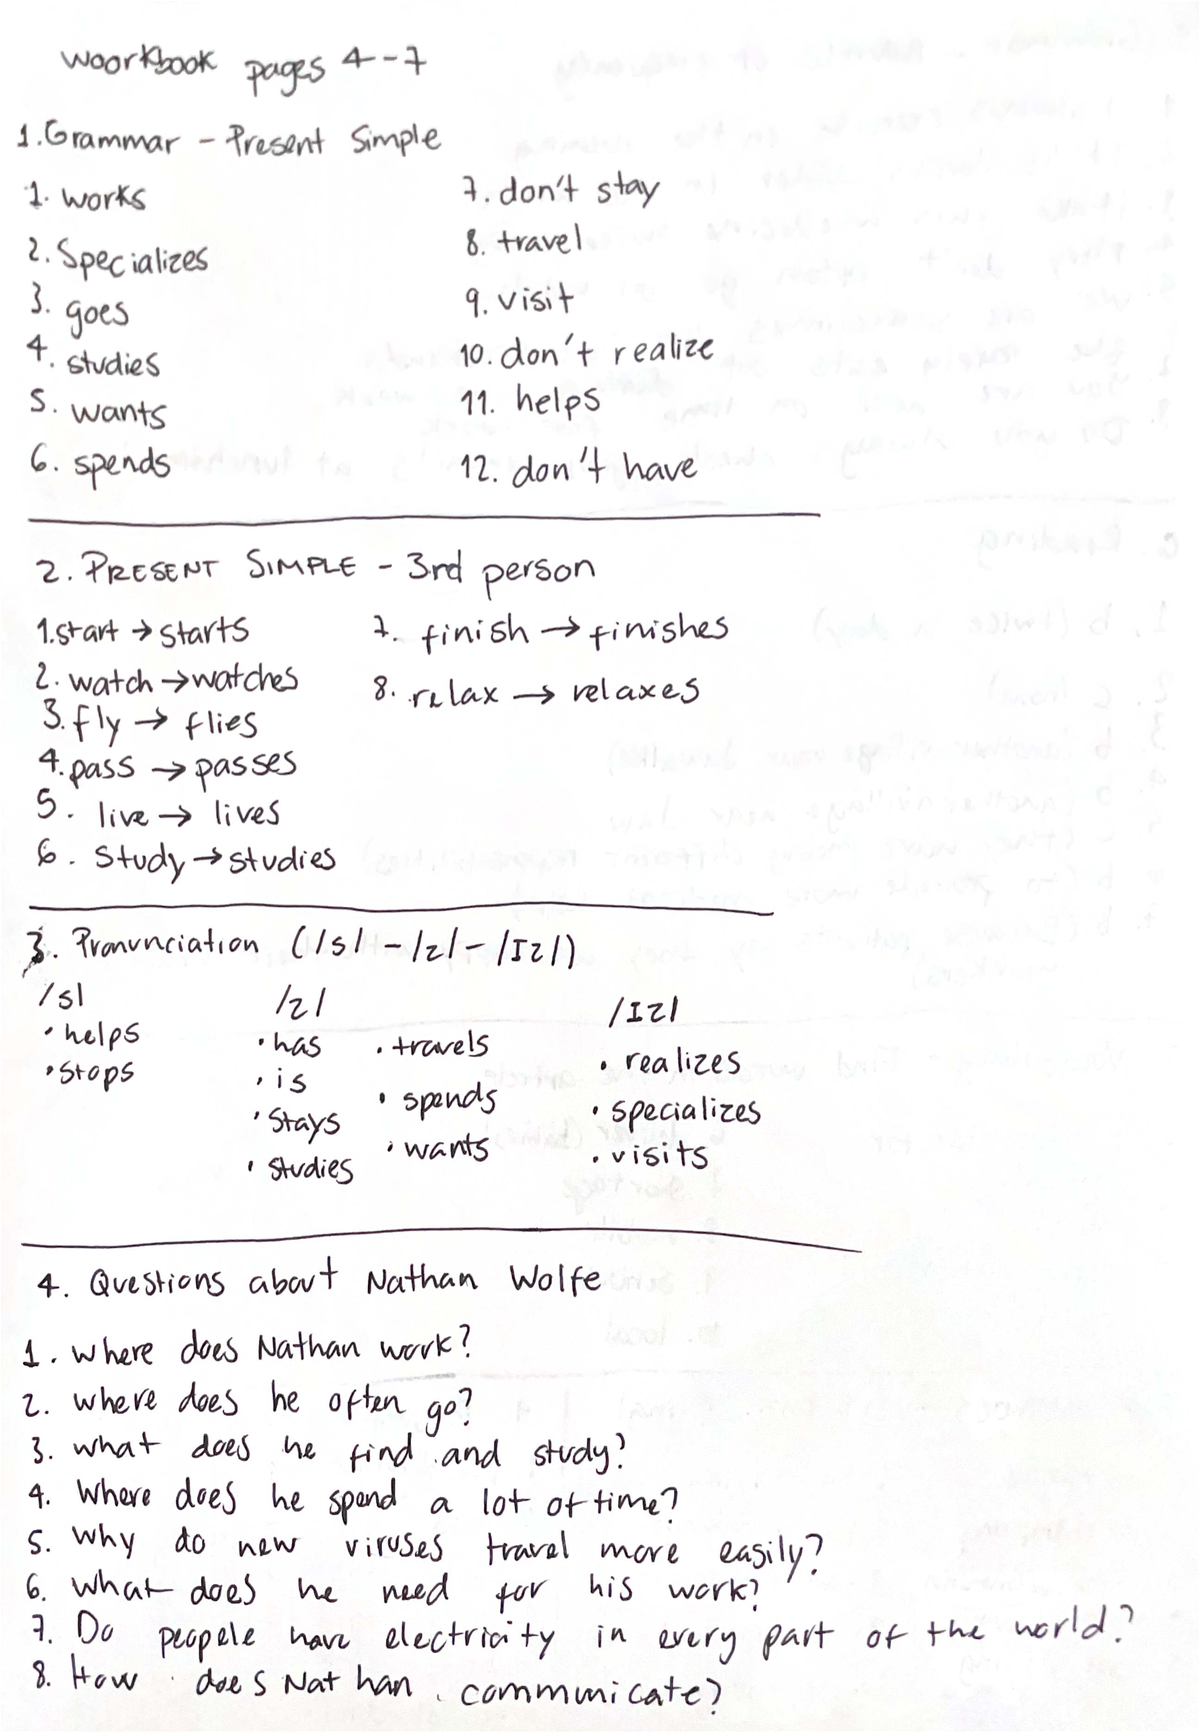 woorkbook pages 4--7
1. Grammar - Present Simple
1. works
2. Specializes
3. goes
4. studies
5. wants
6. spends
7. don't stay
8. travel
9. visit
10. don't realize
11. helps
12. don't have
2. PRESENT SIMPLE - 3rd person
1. start → starts
2. watch → watches
3. fly → flies
4. pass → passes
5. live → lives
6. Study → studies
7. finish → finishes
8. relax → relaxes
3. Pronunciation (/s/ - /z/ - /Iz/)
/s/
• helps
• stops
/z/
• has
• is
• Stays
• studies
• travels
• spends
• wants
/Iz/
• realizes
• specializes
• visits
4. Questions about Nathan Wolfe
1. where does Nathan work?
2. where does he often go?
3. what does he find and study?
4. Where does he spend a lot of time?
5. Why do new viruses travel more easily?
6. what does he need for his work?
7. Do peopele have electricity in every part of the world?
8. How does Nathan communicate?